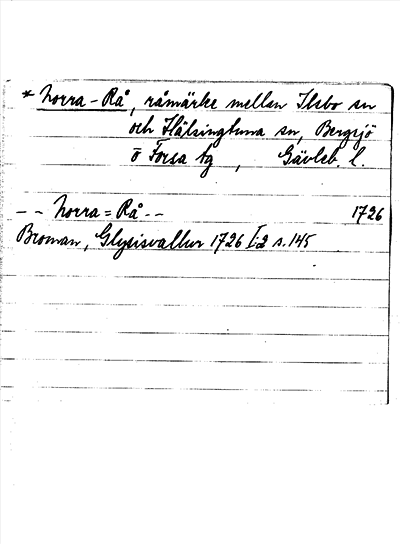 * Norra-Rå, råmärke mellan Ilsbo sn
och Hälsingtuna sn, Bergsjö
o Forsa tg, Gävleb. l.
- - Norra=Rå - - 1726
Broman, Glysisvallur 1726 I:2 s. 145